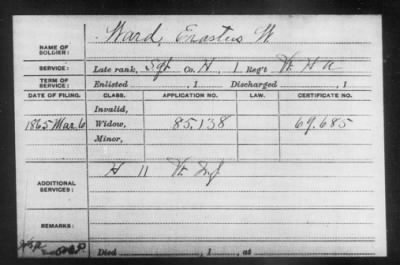 Ward, Erastus W.
NAME OF
SOLDIER:
SERVICE: Late rank, Sgt Co. H, 1 Reg't Vt. H A
TERM OF
SERVICE: Enlisted , 1 Discharged , 1
DATE OF FILING. CLASS. APPLICATION NO. LAW. CERTIFICATE NO.
Invalid,
1865 Mar. 6 Widow, 85.138 69.685
Minor,
ADDITIONAL
SERVICES:
H 11 Vt. Inf
REMARKS:
Died , 1 , at